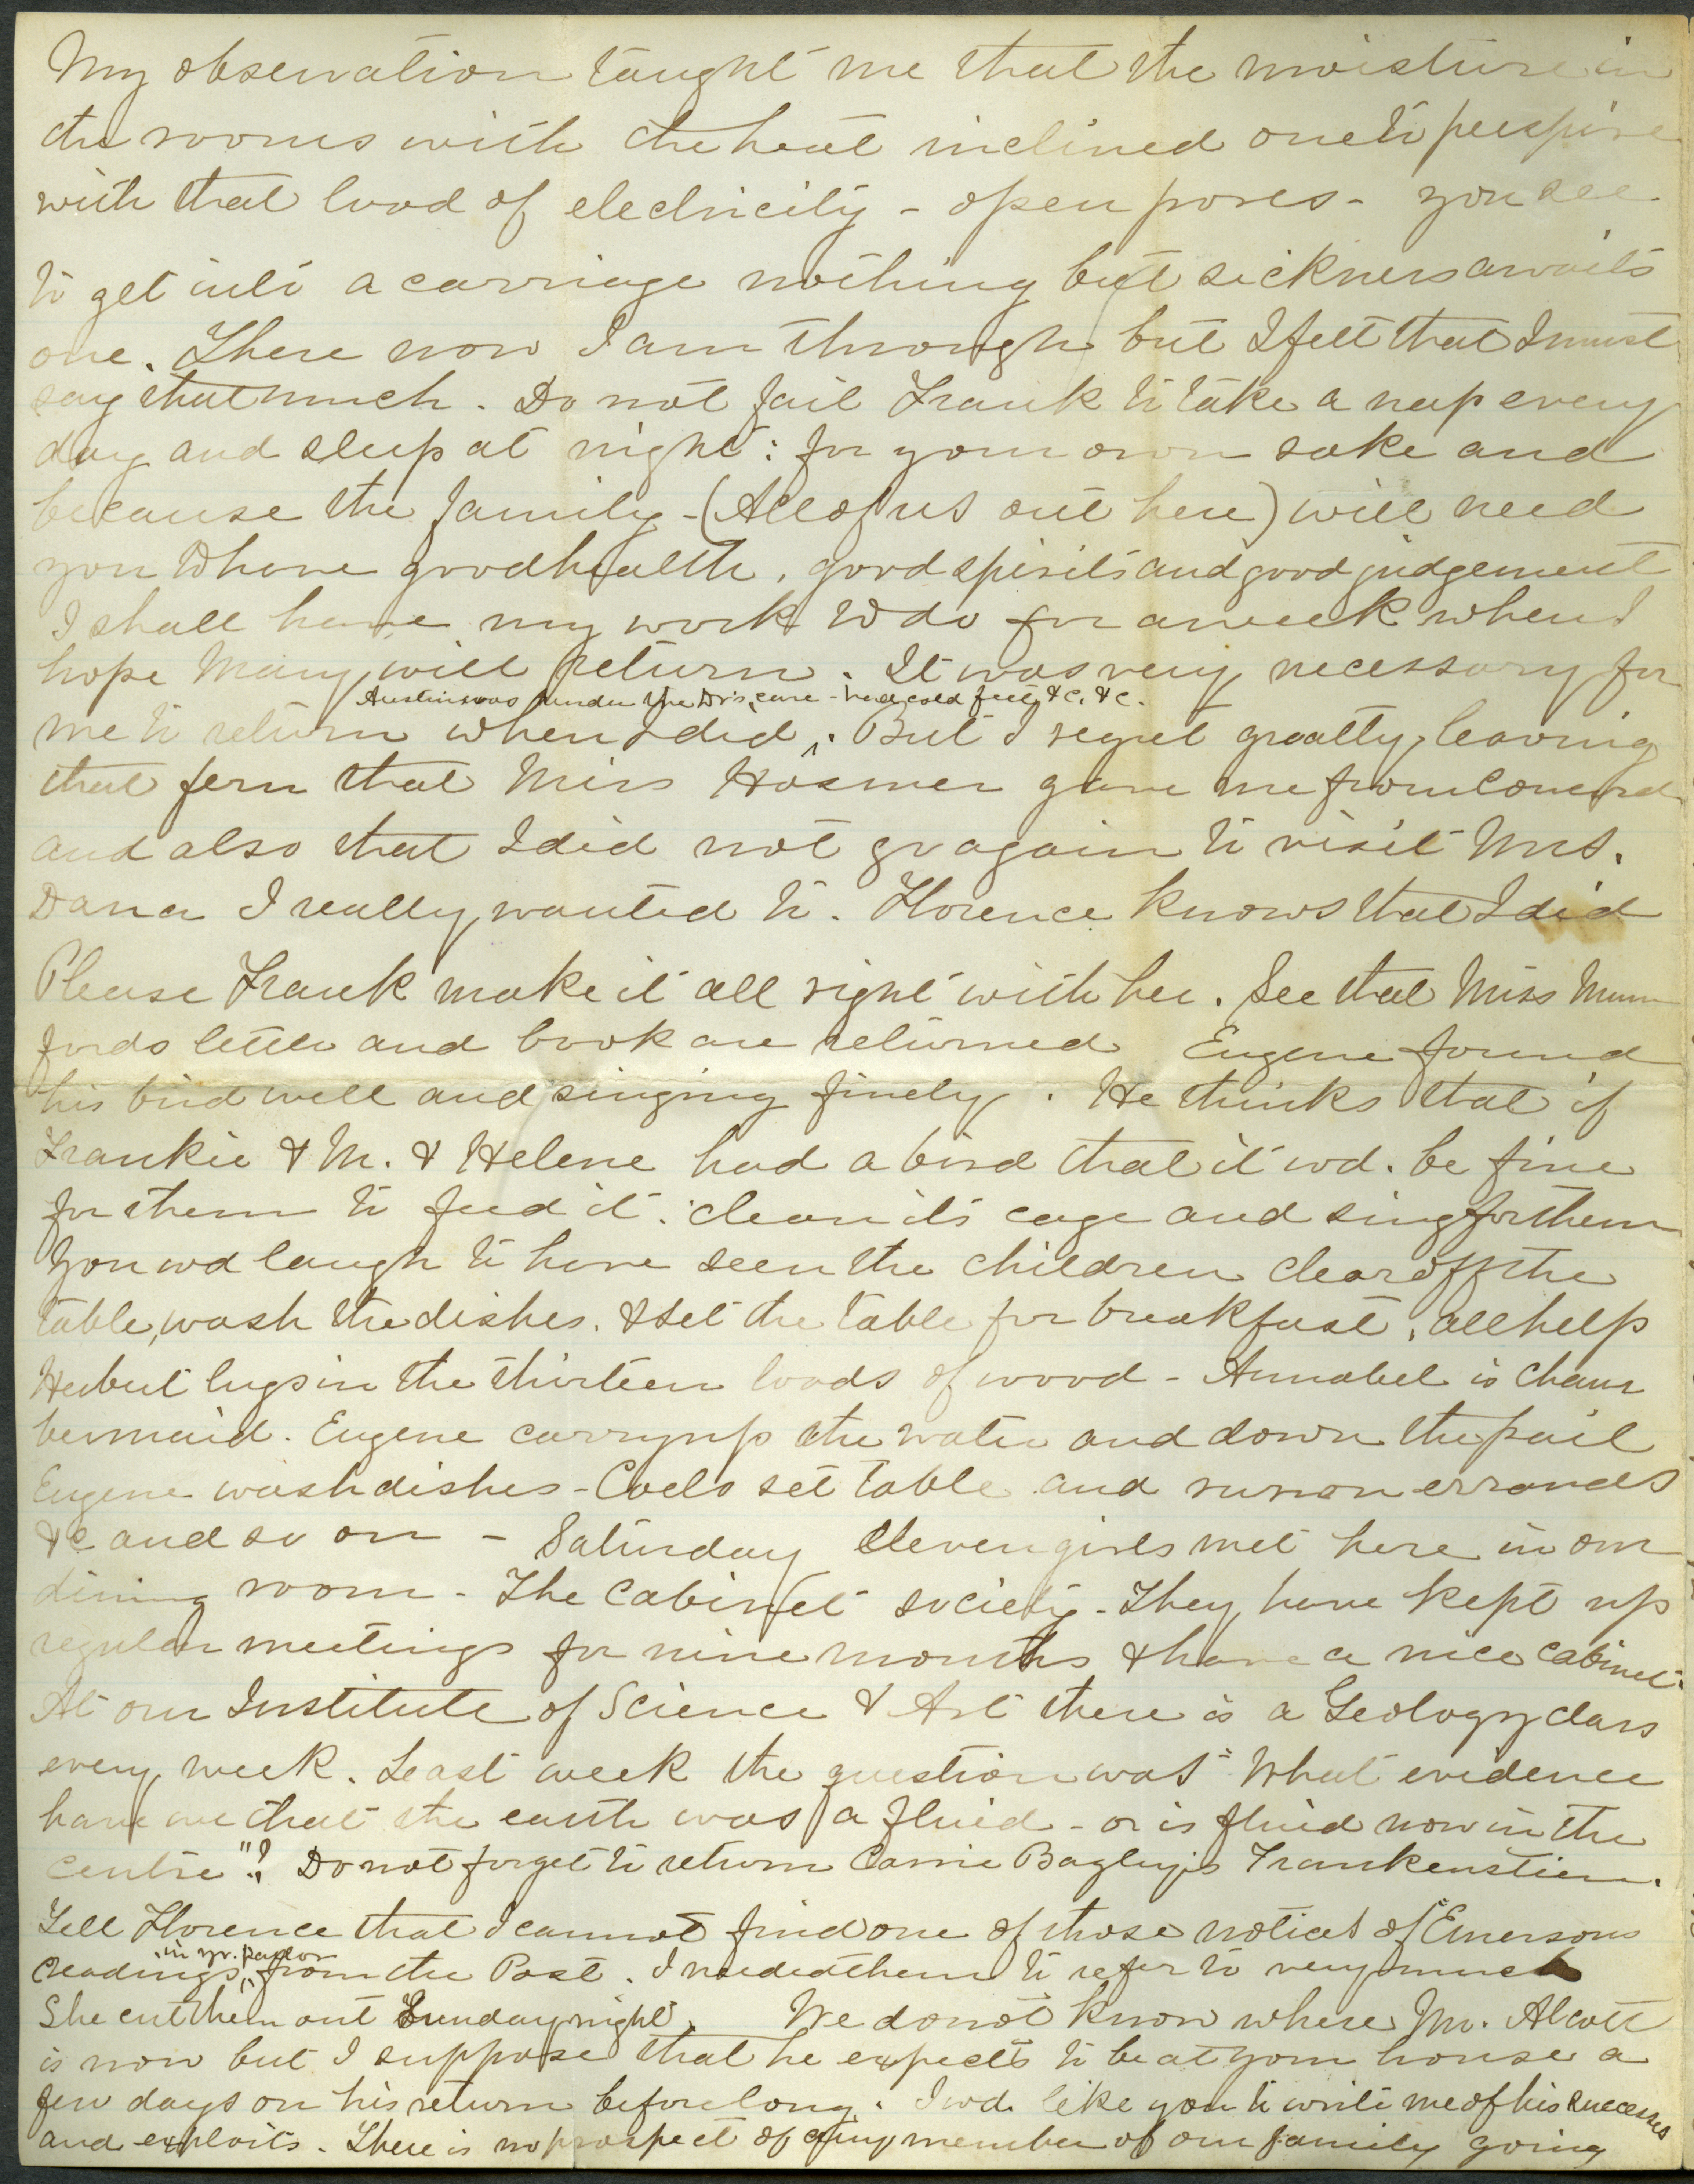 My observation taught me that the moisture in
the rooms with the heat inclined one to perspire
with that load of electricity - open pores - you see.
to get into a carriage nothing but sickness awaits
one. There now I am through but I felt that I must
say that much. Do not fail Frank to take a nap every
day and sleep at night: for your own sake and
because the family - (All of us out here) will need
you to have good health, good spirits and good judgement
I shall have my work to do for a week when I
hope Mary will return. It was very necessary for
Austin was under the Dr's care - had cold feet &c. &c.
me to return when I did ^. But I regret greatly leaving
that fern that Miss Hosmer gave me from Concord
and also that I did not go again to visit Mrs.
Dana I really wanted to. Florence knows that I did
Please Frank make it all right with her. See that Miss Mum
fords letter and book are returned Eugene found
his bird well and singing finely. He thinks that if
Frankie & M. & Helene had a bird that it wd. be fine
for them to feed it: clean its cage and sing for them
You wd laugh to have seen the children clear off the
table, wash the dishes. & set the table for breakfast, all help
Herbert lugs in the thirteen loads of wood - Annabel is cham
bermaid. Eugene carry up the water and down the pail
Eugene wash dishes - Coelo set table and run on errands
&c and so on - Saturday Eleven girls met here in our
dining room - The Cabinet society - They have kept up
regular meetings for nine months & have a nice cabinet.
At our Institute of Science & Art there is a Geology class
every week. Last week the question was "What evidence
have we that the earth was a fluid - or is fluid now in the
centre"? Do not forget to return Carrie Bagley's Frankenstien.
Tell Florence that I cannot find one of those notices of "Emersons
in yr. parlor
readings" ^ from the Post. I needed them to refer to very much
She cut them out Sunday night. We do not know where Mr. Alcott
is now but I suppose that he expects to be at your house a
few days on his return before long. I wd. like you to write me of his successes
and exploits. There is no prospect of any member of our family going